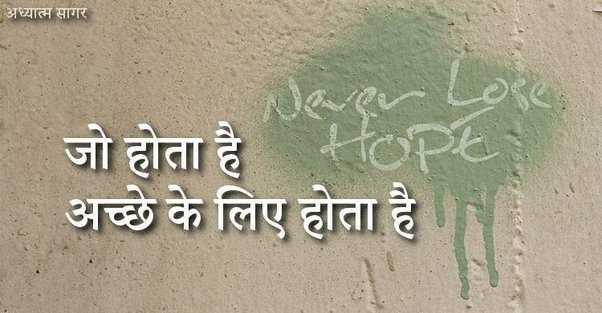 अध्यात्म सागर
Never Lose
HOPE
जो होता है
अच्छे के लिए होता है